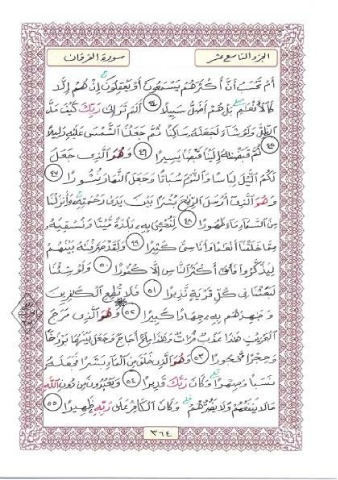 الجزء التاسع عشر
سورة الفرقان
أم تحسب أن أكثرهم يسمعون أو يعقلون إن هم إلا
كالأنعام بل هم أضل سبيلا ٤٤ ألم تر إلى ربك كيف مد
الظل ولو شاء لجعله ساكنا ثم جعلنا الشمس عليه دليلا
٤٥ ثم قبضناه إلينا قبضا يسيرا ٤٦ وهو الذي جعل
لكم الليل لباسا والنوم سباتا وجعل النهار نشورا ٤٧
وهو الذي أرسل الرياح بشرا بين يدي رحمته وأنزلنا
من السماء ماء طهورا ٤٨ لنحيي به بلدة ميتا ونسقيه
مما خلقنا أنعاما وأناسي كثيرا ٤٩ ولقد صرفناه بينهم
ليذكروا فأبى أكثر الناس إلا كفورا ٥٠ ولو شئنا
لبعثنا في كل قرية نذيرا ٥١ فلا تطع الكافرين
وجاهدهم به جهادا كبيرا ٥٢ وهو الذي مرج
البحرين هذا عذب فرات وهذا ملح أجاج وجعل بينهما برزخا
وحجرا محجورا ٥٣ وهو الذي خلق من الماء بشرا فجعله
نسبا وصهرا وكان ربك قديرا ٥٤ ويعبدون من دون الله
ما لا ينفعهم ولا يضرهم وكان الكافر على ربه ظهيرا ٥٥
٣٦٤